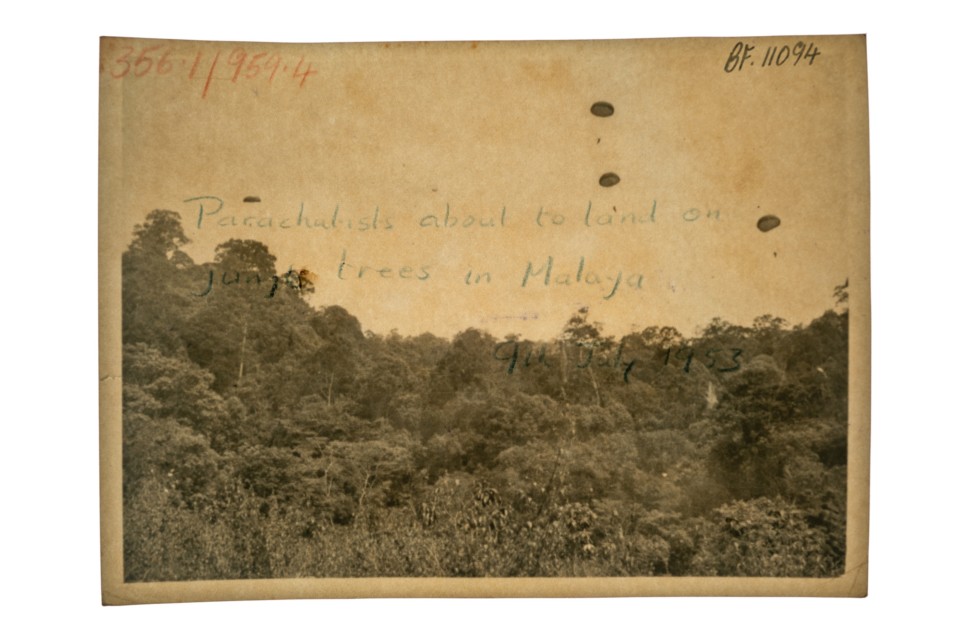 356.1/959.4
BF. 11094
Parachutists about to land on
jungle trees in Malaya
9th July 1953